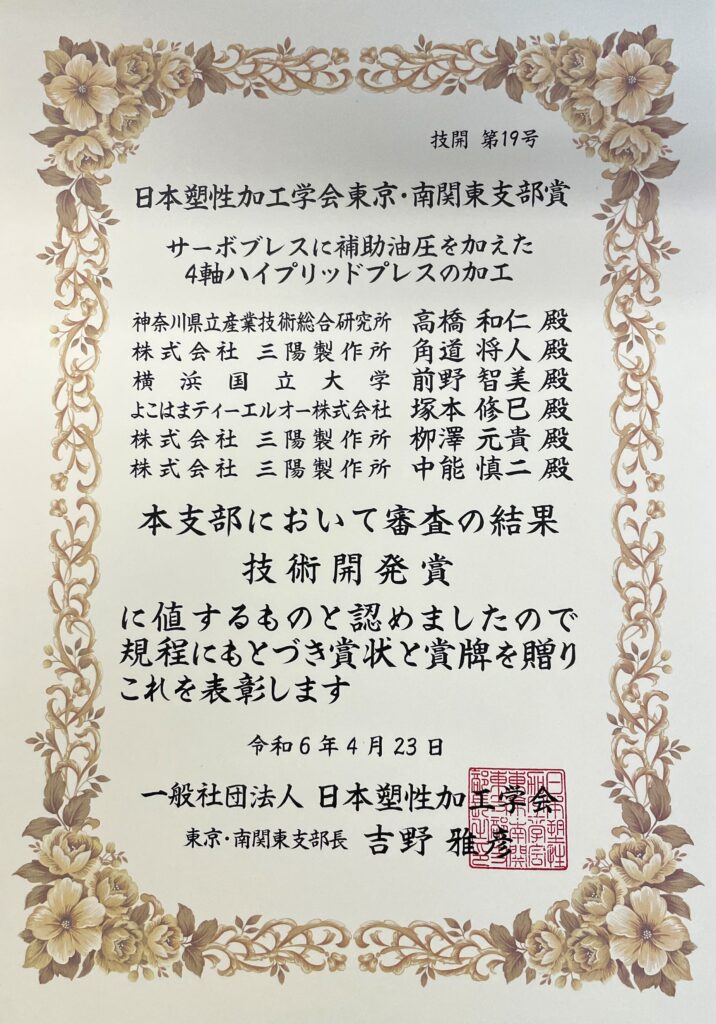 技開 第19号
日本塑性加工学会東京・南関東支部賞
サーボプレスに補助油圧を加えた
4軸ハイブリッドプレスの加工
神奈川県立産業技術総合研究所 高橋 和仁 殿
株式会社 三陽製作所 角道 将人 殿
横浜国立大学 前野 智美 殿
よこはまティーエルオー株式会社 塚本 修巳 殿
株式会社 三陽製作所 栁澤 元貴 殿
株式会社 三陽製作所 中能 慎二 殿
本支部において審査の結果
技術開発賞
に値するものと認めましたので
規程にもとづき賞状と賞牌を贈り
これを表彰します
令和6年4月23日
一般社団法人 日本塑性加工学会
東京・南関東支部長 吉野 雅彦